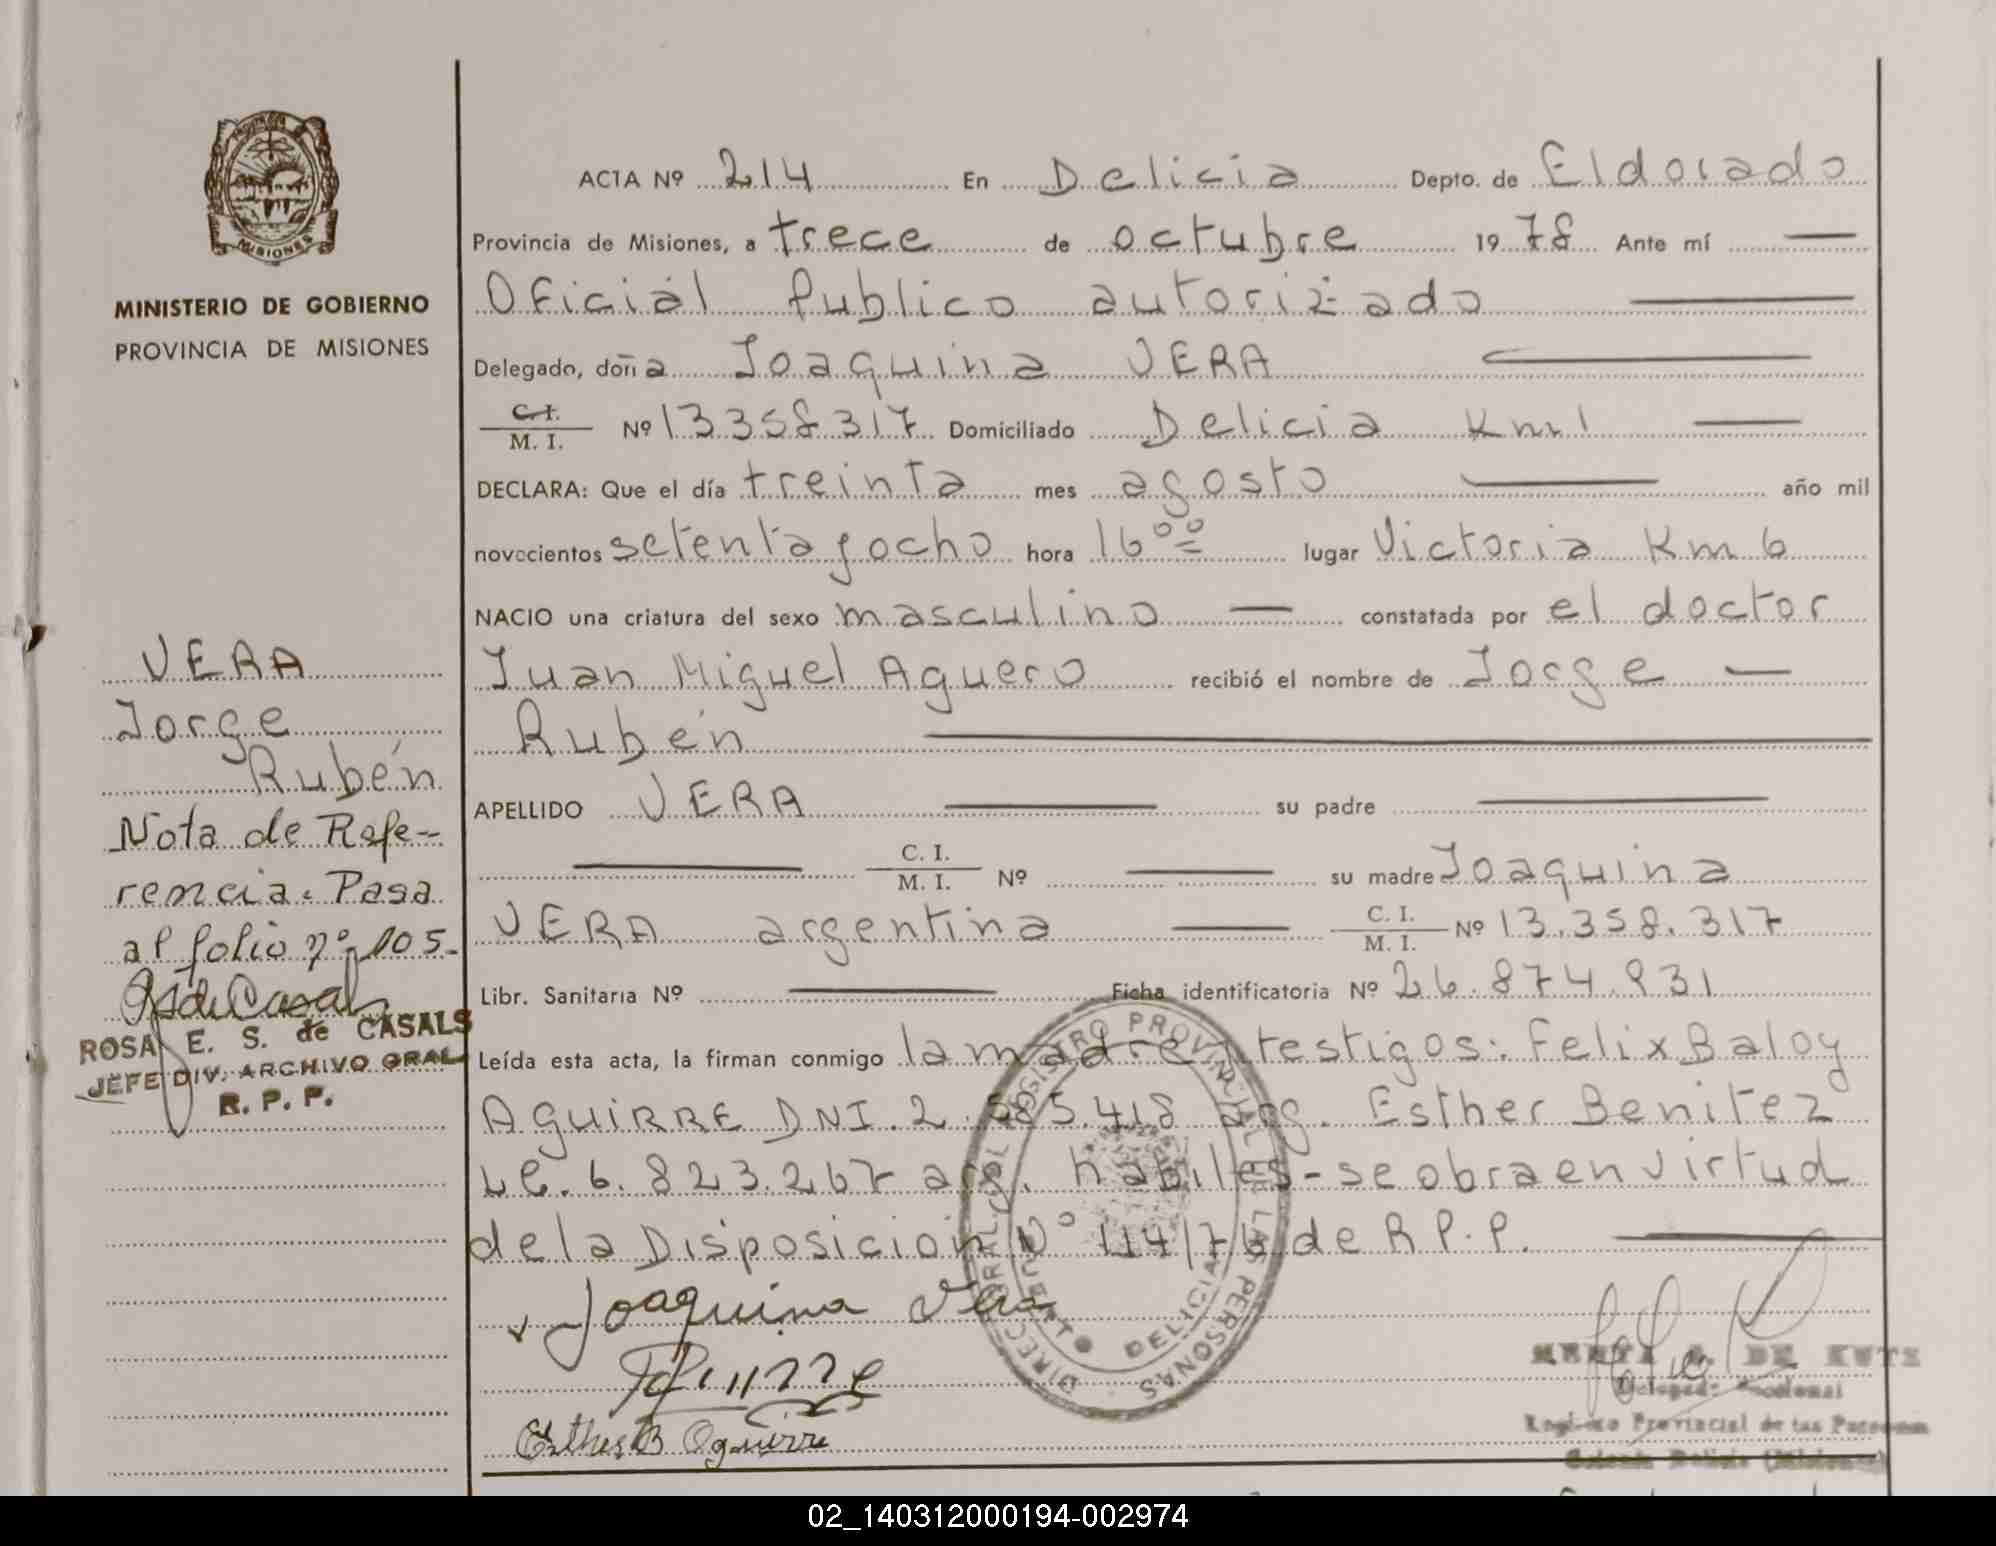 PROVINCIA DE
MISIONES
MINISTERIO DE GOBIERNO
PROVINCIA DE MISIONES
VERA
Jorge
Rubén
Nota de Refe-
rencia. Pasa
al folio nº 105.-
ROSA E. S. de CASALS
JEFE DIV. ARCHIVO GRAL
R. P. P.
ACTA Nº 214 En Delicia Depto. de Eldorado
Provincia de Misiones, a trece de octubre 1978 Ante mí —
Oficial Publico autorizado —
Delegado, doña Joaquina VERA —
C.I. / M. I. Nº 13358317 Domiciliado Delicia Km 1 —
DECLARA: Que el día treinta mes agosto — año mil
novecientos setenta y ocho hora 16ºº lugar Victoria Km 6
NACIO una criatura del sexo masculino — constatada por el doctor
Juan Miguel Aguero recibió el nombre de Jorge —
Rubén —
APELLIDO VERA — su padre —
— C. I. / M. I. Nº — su madre Joaquina
VERA argentina — C. I. / M. I. Nº 13.358.317
Libr. Sanitaria Nº — Ficha identificatoria Nº 26.874.931
Leída esta acta, la firman conmigo la madre y testigos: Felix Baloy
AGUIRRE DNI. 2.585.418 arg. Esther Benitez
LC. 6.823.267 arg. habiles - se obra en virtud
de la Disposicion Nº 114/76 de R P. P. —
Joaquina Vera
Aguirre
Esther B Aguirre
DIREC. GRAL. DEL REGISTRO PROVINCIAL DE LAS PERSONAS
DELICIA
DE KUTZ
Registro Provincial de las Personas
Colonia Delicia (Misiones)
02_140312000194-002974